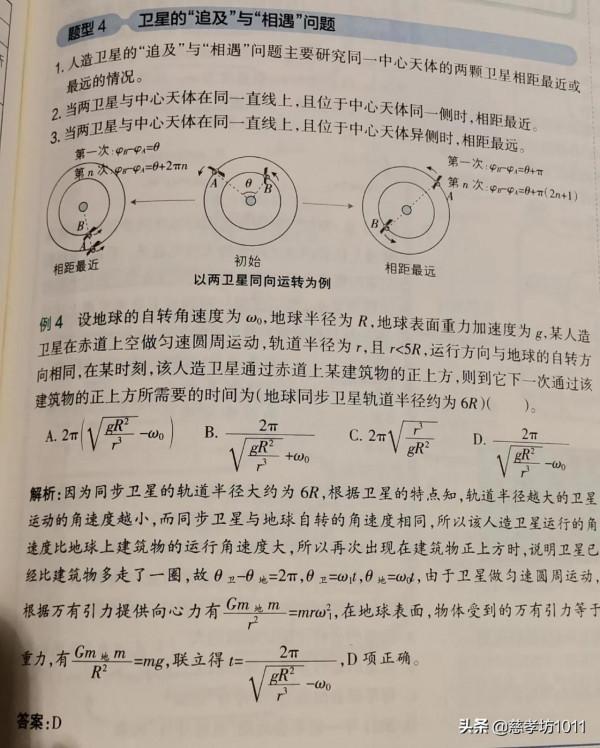 题型4 卫星的“追及”与“相遇”问题
1.人造卫星的“追及”与“相遇”问题主要研究同一中心天体的两颗卫星相距最近或
最远的情况。
2.当两卫星与中心天体在同一直线上,且位于中心天体同一侧时,相距最近。
3.当两卫星与中心天体在同一直线上,且位于中心天体异侧时,相距最远。
第一次:φB-φA=θ
第n次:φB-φA=θ+2πn
B
A
相距最近
A
θ
B
初始
第一次:φB-φA=θ+π
第n次:φB-φA=θ+π(2n+1)
A
B
相距最远
以两卫星同向运转为例
例4 设地球的自转角速度为ω₀,地球半径为R,地球表面重力加速度为g,某人造
卫星在赤道上空做匀速圆周运动,轨道半径为r,且r<5R,运行方向与地球的自转方
向相同,在某时刻,该人造卫星通过赤道上某建筑物的正上方,则到它下一次通过该
建筑物的正上方所需要的时间为(地球同步卫星轨道半径约为6R)( )。
A. 2π(√(gR²/r³)-ω₀) B. 2π/(√(gR²/r³)+ω₀) C. 2π√(r³/gR²) D. 2π/(√(gR²/r³)-ω₀)
解析:因为同步卫星的轨道半径大约为6R,根据卫星的特点知,轨道半径越大的卫星
运动的角速度越小,而同步卫星与地球自转的角速度相同,所以该人造卫星运行的角
速度比地球上建筑物的运行角速度大,所以再次出现在建筑物正上方时,说明卫星已
经比建筑物多走了一圈,故θ卫-θ地=2π,θ卫=ω₁t,θ地=ω₀t,由于卫星做匀速圆周运动,
根据万有引力提供向心力有Gm地m/r²=mrω₁²,在地球表面,物体受到的万有引力等于
重力,有Gm地m/R²=mg,联立得t=2π/(√(gR²/r³)-ω₀),D项正确。
答案:D
头条 @慈孝坊1011